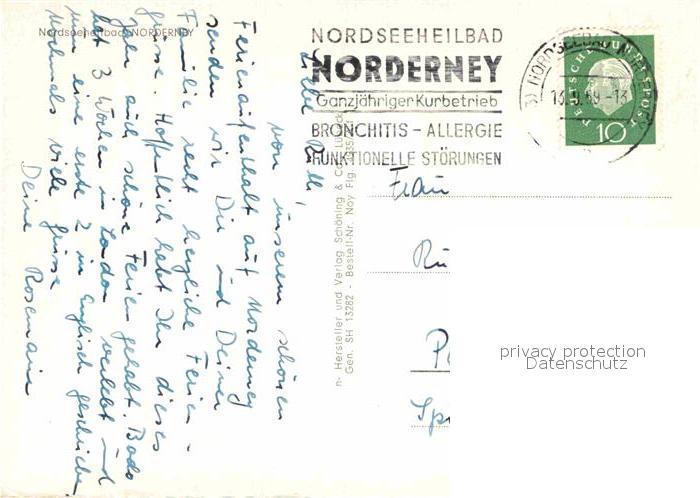 Nordseeheilbad NORDERNEY
NORDSEEHEILBAD
NORDERNEY
Ganzjähriger Kurbetrieb
BRONCHITIS – ALLERGIE
FUNKTIONELLE STÖRUNGEN
13.9.69-13
DEUTSCHE BUNDESPOST
10
Liebe
von unserem schönen
Ferienaufenthalt auf Norderney
senden wir Dir und Deiner
Familie recht herzliche Ferien-
grüsse. Hoffentlich habt Ihr dieses
Jahr auch schöne Ferien gehabt. Bodo
hat 3 Wochen in London verlebt und
nun eine erste 2 in Englisch geschrieben
Nochmals viele Grüsse
Deine Rosemarie
n- Hersteller und Verlag Schöning & Co., Lübeck
Gen. SH 13282 - Bestell-Nr. Noy Flg.
Frau
Rü
P
Spr
privacy protection
Datenschutz